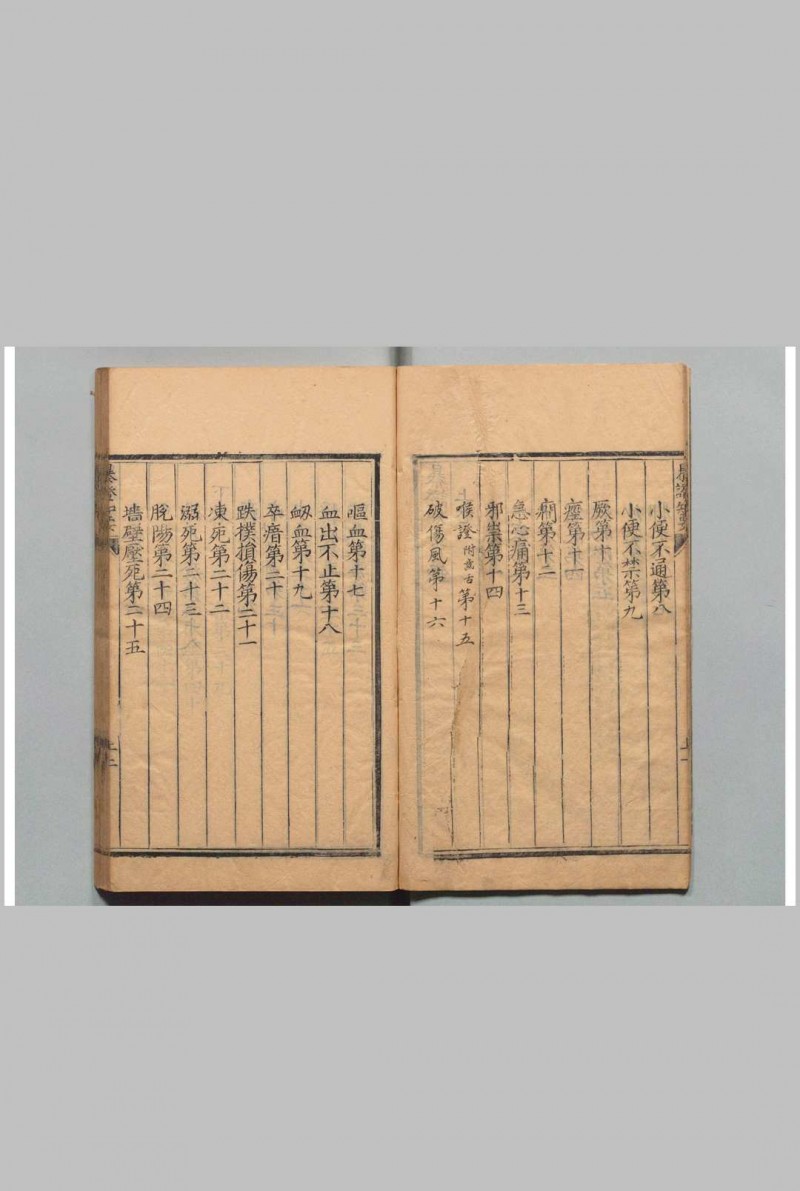 小便不通第八
小便不禁第九
厥第十
痙第十四
癎第十二
急心痛第十三
邪祟第十四
喉證附急古第十五
破傷風第十六
嘔血第十七
血出不止第十八
衂血第十九
卒瘖第二十
跌撲損傷第二十一
凍死第二十二
溺死第二十三
脫陽第二十四
墻壁壓死第二十五